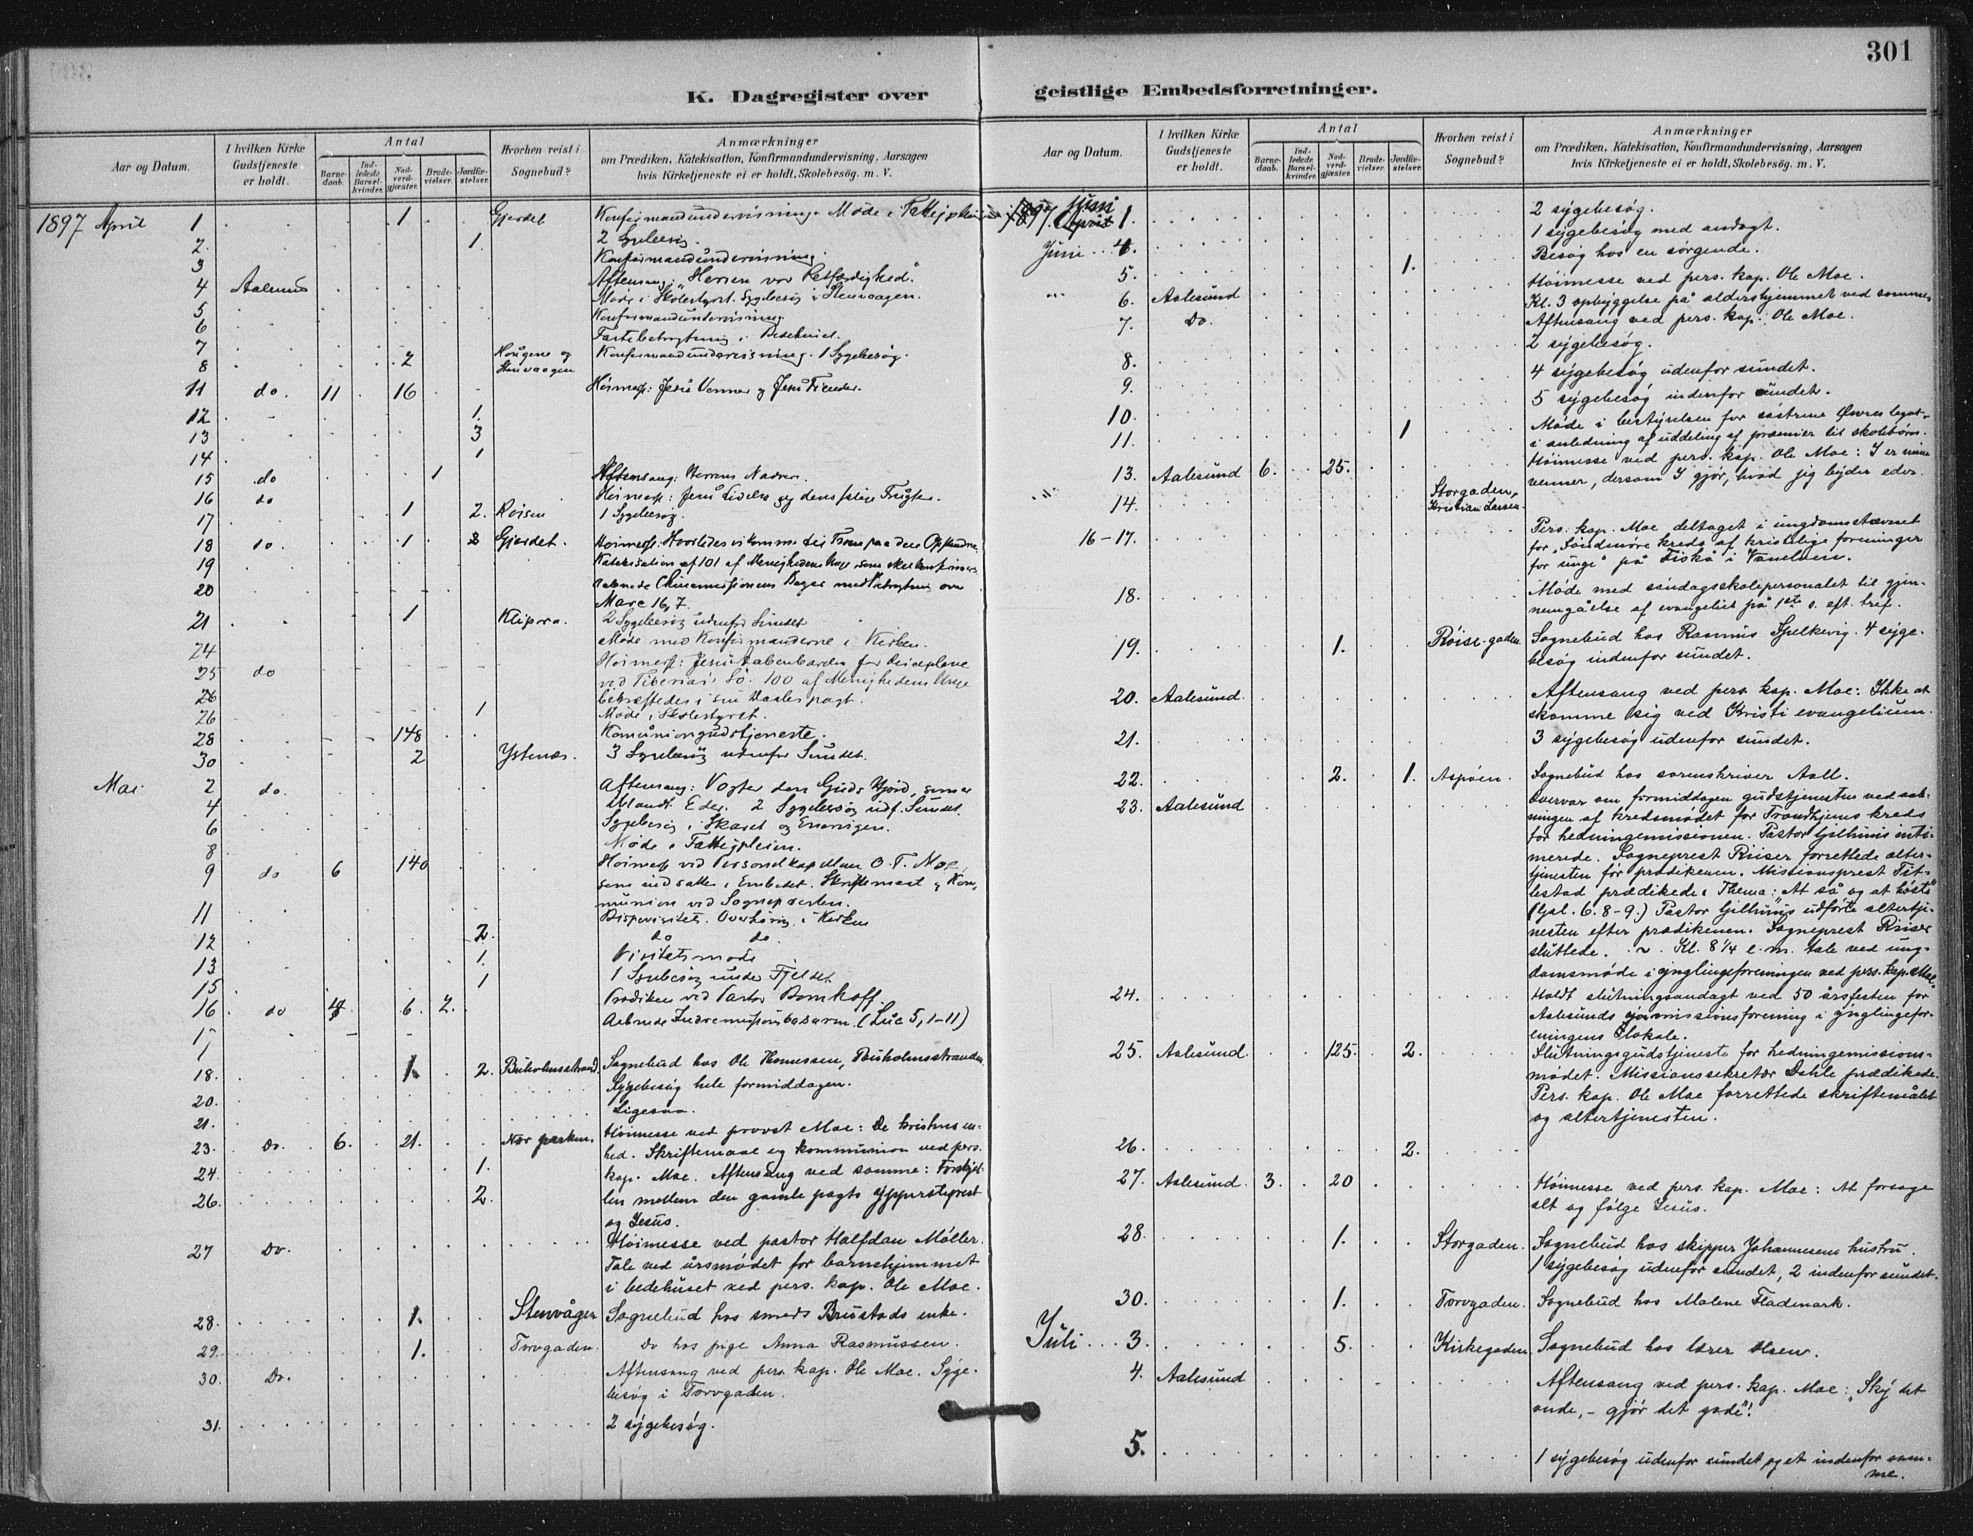 301
K. Dagregister over
geistlige Embedsforretninger.
Aar og Datum.
I hvilken Kirke Gudstjeneste er holdt.
Antal
Barnedaab.
Indledede Barselkvinder.
Nadverdgjæster.
Brudevielser.
Jordfæstelser.
Hvorhen reist i Sognebud?
Anmærkninger
om Prædiken, Katekisation, Konfirmandundervisning, Aarsagen
hvis Kirketjeneste ei er holdt, Skolebesøg. m. V.
1897 April 1 1 Gjerdet Konfirmandundervisning. Møde i
2. 1. 2 Sygebesøg.
3 Konfirmandundervisning.
4 Aalesund Aftensang: "Herren vor Retfærdighed."
5 Møde i Skolestyret. Sygebesøg i Stenvaagen.
6 Konfirmandundervisning.
7 Fastebetragtning i Bedehuset.
8 2 Haugene og Stenvaagen Konfirmandundervisning. 1 Sygebesøg.
11 do. 11 16 Høimesse: Jesu Venner og Jesu Fiender.
12 1.
13 3
14 1
15 do 1 Aftensang: Herrens Nadver.
16 do Høimesse: Jesu Lidelse og dens salige Frugter.
17 1 2. Røisen 1 Sygebesøg.
18 do. 1 2 Gjerdet. Høimesse: Hvorledes vi komme til Troen paa den Opstandne
19 Katekisation af 101 af Menighedens
20 aabnede Kinamissionens Bazar med Betragtning over
Marc 16, 7.
21 1 Klipora. 2 Sygebesøg udenfor Sundet
24 Møde med Konfirmanderne i Kirken.
25 do Høimesse: Jesu Aabenbarelse for Disciplene
ved Tiberias Sø. 100 af Menighedens Unge
26 bekræftedes i sin Daabspagt.
26 1 Møde i Skolestyret.
28 148 Kommuniongudstjeneste.
30 2 Ystenæs. 3 Sygebesøg udenfor Sundet.
Mai 2 do. Aftensang: Vogter den Guds Hjord, som er
4 iblandt Eder. 2 Sygebesøg udf. Sundet.
6 Sygebesøg i Skaret og
8 Møde i Fattigpleien.
9 do 6 140 Høimesse ved Personelkapellan O. T. Moe
som indsattes i Embedet. Skriftemaal og Kom-
munion ved Sognepresten.
11 Bispevisitats. Overhøring i Kirken
12 2. do do.
13 1. Visitatsmøde
15 1 1 Sygebesøg under Fjeldet
16 do 4 6. 2. Prædiken ved Pastor Bomhoff.
Aabnede Indremissionsbasaren. (Luc 5, 1-11)
18. 1. 2. Buholmsstrand. Sognebud hos Ole Hannessen, Buholmsstranden.
20. Sygebesøg hele formiddagen.
21. Ligesaa.
23. Do. 6. 21. Nær parken. Høimesse ved provst Moe: De kristnes en-
hed. Skriftemaal og kommunion ved pers.
24. 1. kap. Moe. Aftensang ved samme: Forskjel-
26. 2. len mellem den gamle pagts ypperstepræst
og Jesus.
27 Do. Høimesse ved pastor Halfdan Møller.
Tale ved årsmødet for barnehjemmet
i bedehuset ved pers. kap. Ole Moe.
28. 1. Stenvågen Sognebud hos smed Brustads enke.
29. 1. Torvgaden. Do hos pige Anna Rasmussen.
30. Do. Aftensang ved pers. kap. Ole Moe. Syge-
besøg i Torvgaden.
31. 2 sygebesøg.
Aar og Datum.
I hvilken Kirke Gudstjeneste er holdt.
Antal
Barnedaab.
Indledede Barselkvinder.
Nadverdgjæster.
Brudevielser.
Jordfæstelser.
Hvorhen reist i Sognebud?
Anmærkninger
om Prædiken, Katekisation, Konfirmandundervisning, Aarsagen
hvis Kirketjeneste ei er holdt, Skolebesøg. m. V.
1897. Juni 1. 2 sygebesøg.
Juni 4. 1 sygebesøg med andagt.
5. 1. Besøg hos en sørgende.
6. Aalesund Høimesse ved pers. kap. Ole Moe.
Kl. 3 opbyggelse på aldershjemmet ved samme.
7. Do. Aftensang ved pers. kap. Ole Moe.
8. 2 sygebesøg.
9. 4 sygebesøg udenfor sundet.
10. 5 sygebesøg indenfor sundet.
11. 1 Møde i bestyrelsen for søstrene Øvres legat
i anledning af uddeling af præmier til skolebørn.
13. Aalesund 6. 25. Høimesse ved pers. kap. Ole Moe: I er mine
venner, dersom I gjør, hvad jeg byder eder.
14. Storgaden, Kristian Larsen.
16-17. Pers. kap. Moe deltaget i ungdomsstævnet
for "Søndmøre kreds af kristelige foreninger
for unge" på Fiskå i Vanelven.
18. Møde med søndagsskolepersonalet til gjen-
nemgåelse af evangeliet på 1ste s. eft. tref.
19. 1. Røise-gaden. Sognebud hos Rasmus Spelkevig. 4 syge-
besøg indenfor sundet.
20. Aalesund. Aftensang ved pers. kap. Moe: Ikke at
skamme sig ved Kristi evangelium.
21. 3 sygebesøg udenfor sundet.
22. 2. 1. Aspøen. Sognebud hos sorenskriver Aall.
23. Aalesund Overvar om formiddagen gudstjenesten ved aab-
ningen af kredsmødet for Trondhjems kreds
for hedningemissionen. Pastor Gilhuus inti-
merede. Sogneprest Riiser forrettede alter-
tjenesten før prædikenen. Missionsprest Tit-
lestad prædikede. Thema: "At så og at høste"
(Gal. 6. 8-9.) Pastor Gilhuus udførte altertje-
nesten efter prædikenen. Sogneprest Riiser
sluttede. Kl. 8¼ e. m. tale ved ung-
domsmøde i ynglingeforeningen ved pers. kap. Moe.
24. Holdt slutningsandagt ved 50 årsfesten for
Aalesunds missionsforening i ynglingefor-
eningens lokale.
25. Aalesund. 125. 2. Slutningsgudstjeneste for hedningemissions-
mødet. Missionssekretær Dahle prædikede.
Pers. kap. Ole Moe forrettede skriftemålet
og altertjenesten.
26. 2.
27. Aalesund. 3. 20 Høimesse ved pers. kap. Moe: At forsage
alt og følge Jesus.
28. 1. Storgaden. Sognebud hos skipper Johannesens hustru.
1 sygebesøg udenfor sundet, 2 indenfor sundet.
30. 1. Torvgaden. Sognebud hos Malene Flademark.
Juli 3. 5. Kirkegaden. Sognebud hos lærer Olsen.
4. Aalesund Aftensang ved pers. kap. Moe: "Sky det
onde, - gjør det gode"!
5. 1 sygebesøg udenfor sundet og et indenfor sam-
me.